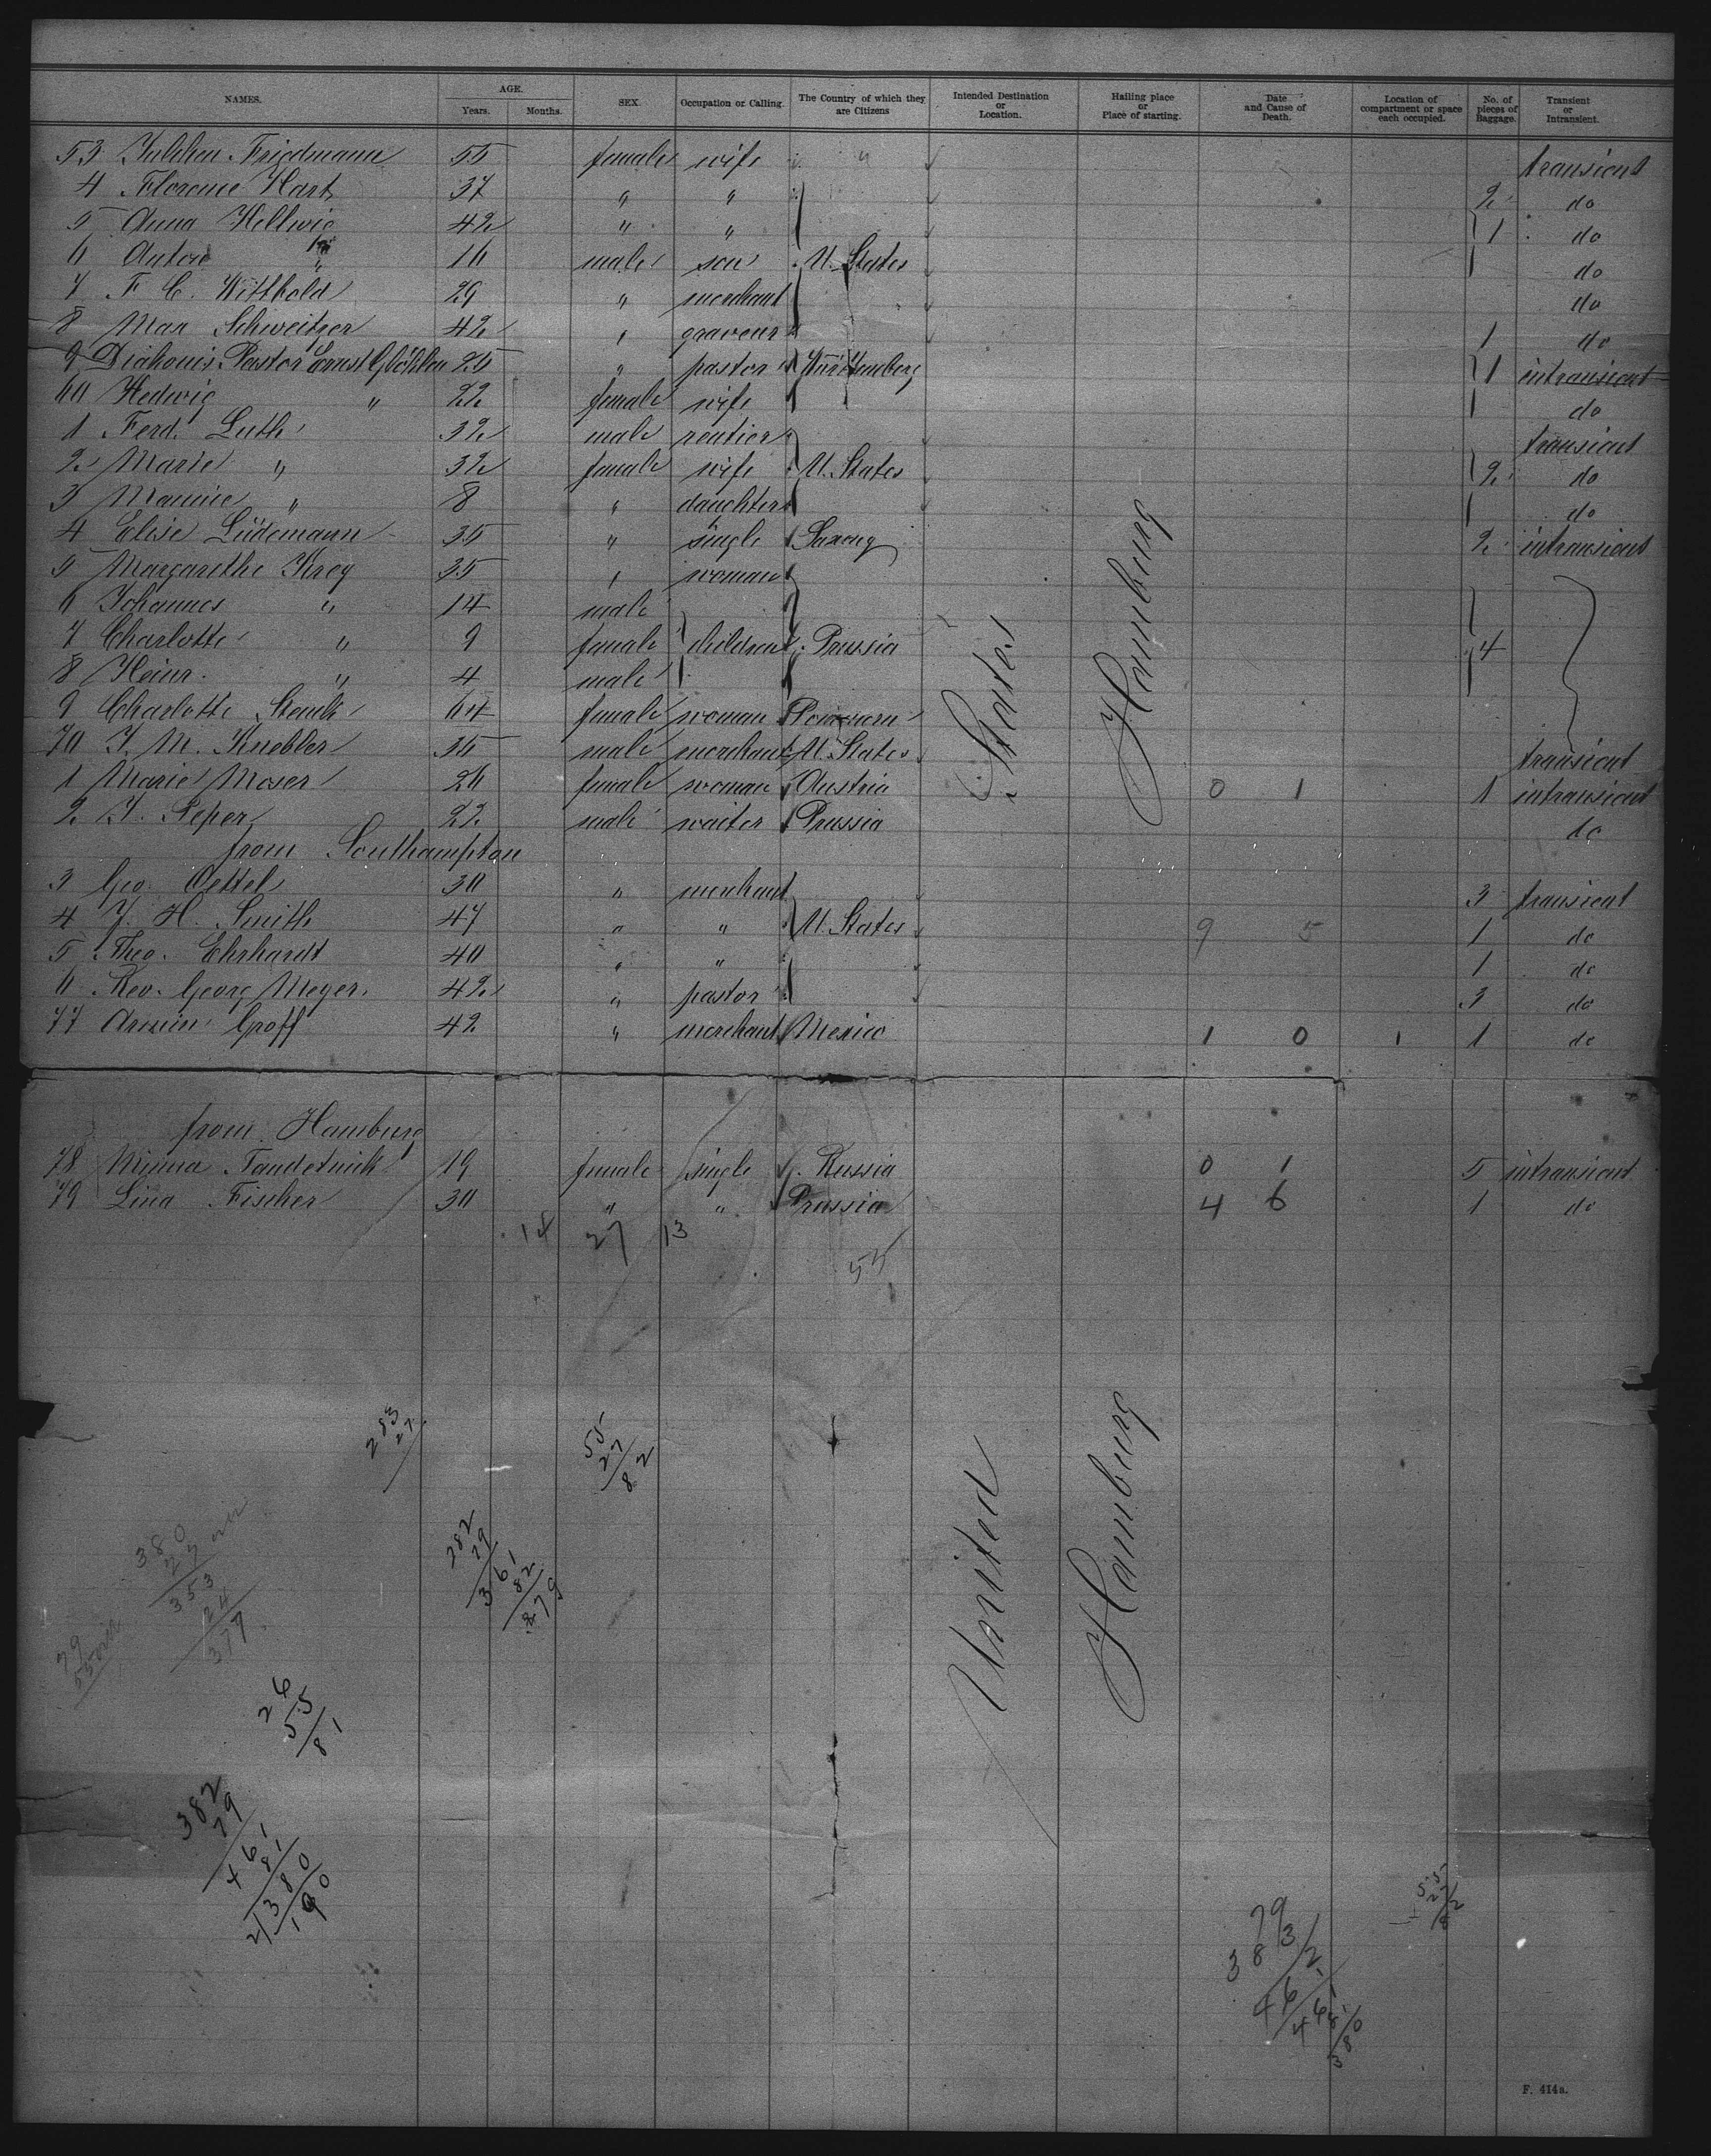 NAMES. AGE. SEX. Occupation or Calling. The Country of which they are Citizens Intended Destination or Location. Hailing place or Place of starting. Date and Cause of Death. Location of compartment or space each occupied. No. of pieces of Baggage. Transient or Intransient.
Years. Months.
53 Julchen Friedmann 55 female wife " transient
4 Florence Hart 37 " " 2 do
5 Anna Hellwig 42 " " 1 do
6 Anton " 16 male son U. States do
7 F C. Witthold 29 " merchant do
8 Max Schweitzer 42 " graveur 1 do
9 Diakonis Pastor Ernst 26 " pastor Württemberg 1 intransient
60 Hedwig " 22 female wife do
1 Ferd. Luth 32 male rentier transient
2 Marie " 32 female wife U. States 2 do
3 Mamie " 8 " daughter do
4 Elise Lüdemann 35 " single Saxony 2 intransient
5 Margarethe Krey 35 " woman
6 Johannes " 14 male
7 Charlotte " 9 female children Prussia 4
8 Heinr. " 4 male
9 Charlotte 64 female woman
70 J. M. Knobler 35 male merchant U. States transient
1 Marie Moser 26 female woman Austria 0 1 1 intransient
2 J. Seper 22 male waiter Prussia do
from Southampton
3 Geo. Oettel 30 " merchant 3 transient
4 J. H. Smith 47 " " U. States 9 5 1 do
5 Theo. Ehrhardt 40 " " 1 do
6 Rev. Georg Meyer 42 " pastor 3 do
77 Armin Groff 42 " merchant Mexico 1 0 1 1 do
States
Hamburg
from Hamburg
78 Minna Tandetnick 19 female single Russia 0 1 5 intransient
79 Lina Fischer 30 " " Prussia 4 6 1 do
14 27 13
55
United
Hamburg
283
27
55
27
82
282
79
361
82
279
380
27
353
24
377
79
55
26
55
81
382
79
461
81
380
190
79
383
462
461
81
380
55
27
82
F. 414a.